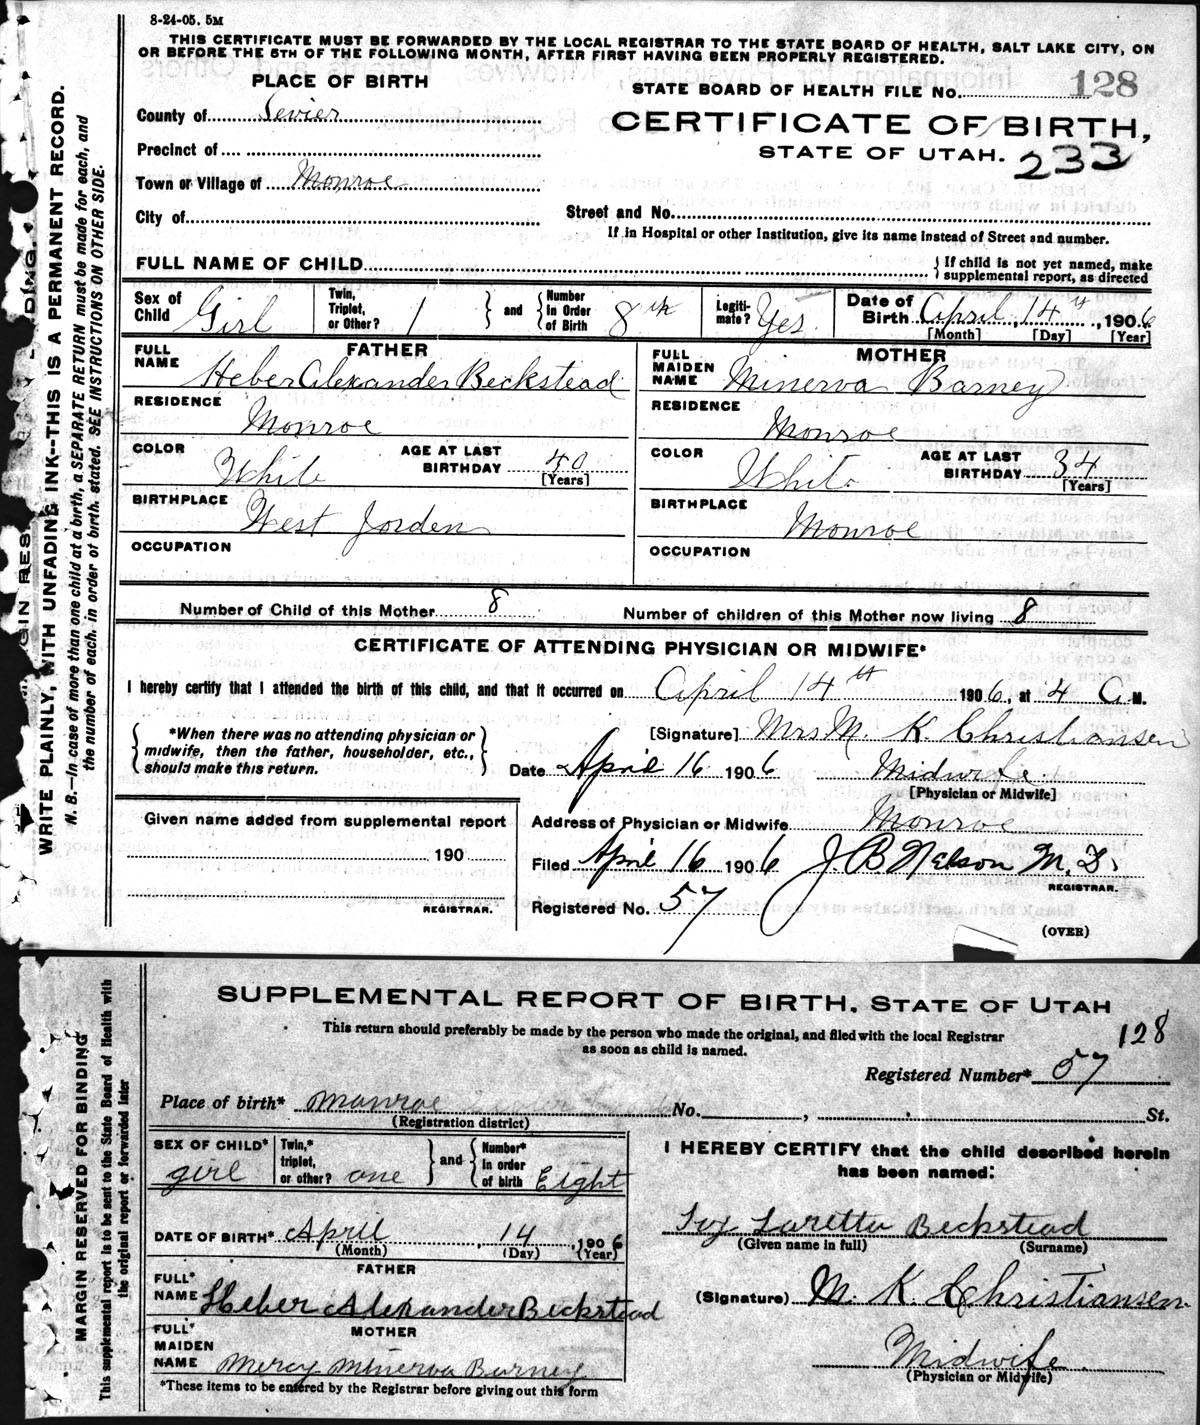 8-24-05. 5M
THIS CERTIFICATE MUST BE FORWARDED BY THE LOCAL REGISTRAR TO THE STATE BOARD OF HEALTH, SALT LAKE CITY, ON
OR BEFORE THE 5TH OF THE FOLLOWING MONTH, AFTER FIRST HAVING BEEN PROPERLY REGISTERED.
PLACE OF BIRTH
STATE BOARD OF HEALTH FILE No. 128
County of Sevier
CERTIFICATE OF BIRTH,
Precinct of
STATE OF UTAH. 233
Town or Village of Monroe
City of
Street and No.
If in Hospital or other Institution, give its name instead of Street and number.
FULL NAME OF CHILD
{ If child is not yet named, make
supplemental report, as directed
Sex of Child Girl
Twin, Triplet, or Other? 1 } and { Number In Order of Birth 8th
Legiti-mate? Yes
Date of Birth April 14th, 1906
[Month] [Day] [Year]
FATHER
FULL NAME Heber Alexander Beckstead
RESIDENCE Monroe
COLOR White AGE AT LAST BIRTHDAY 40
[Years]
BIRTHPLACE West Jorden
OCCUPATION
MOTHER
FULL MAIDEN NAME Minerva Barney
RESIDENCE Monroe
COLOR White AGE AT LAST BIRTHDAY 34
[Years]
BIRTHPLACE Monroe
OCCUPATION
Number of Child of this Mother 8 Number of children of this Mother now living 8
CERTIFICATE OF ATTENDING PHYSICIAN OR MIDWIFE*
I hereby certify that I attended the birth of this child, and that it occurred on April 14th 1906, at 4 A.M.
{ *When there was no attending physician or
midwife, then the father, householder, etc.,
should make this return. }
[Signature] Mrs M. K. Christiansen
Date April 16 1906 Midwife
[Physician or Midwife]
Given name added from supplemental report
190
REGISTRAR.
Address of Physician or Midwife Monroe
Filed April 16 1906 J. B Nelson M. D.
REGISTRAR.
Registered No. 57
(OVER)
WRITE PLAINLY, WITH UNFADING INK--THIS IS A PERMANENT RECORD.
N. B.—In case of more than one child at a birth, a SEPARATE RETURN must be made for each, and
the number of each, in order of birth, stated. SEE INSTRUCTIONS ON OTHER SIDE.
SUPPLEMENTAL REPORT OF BIRTH, STATE OF UTAH
This return should preferably be made by the person who made the original, and filed with the local Registrar
as soon as child is named.
128
Registered Number* 57
Place of birth* Monroe No. , St.
(Registration district)
SEX OF CHILD* girl
Twin,* triplet, or other? one } and { Number* in order of birth Eight
DATE OF BIRTH* April 14, 1906
(Month) (Day) (Year)
FATHER
FULL* NAME Heber Alexander Beckstead
MOTHER
FULL* MAIDEN NAME Mercy Minerva Barney
*These items to be entered by the Registrar before giving out this form
I HEREBY CERTIFY that the child described herein
has been named:
Ivy Laretta Beckstead
(Given name in full) (Surname)
(Signature) M. K. Christiansen
Midwife
(Physician or Midwife)
MARGIN RESERVED FOR BINDING
This supplemental report is to be sent to the State Board of Health with
the original report or forwarded later